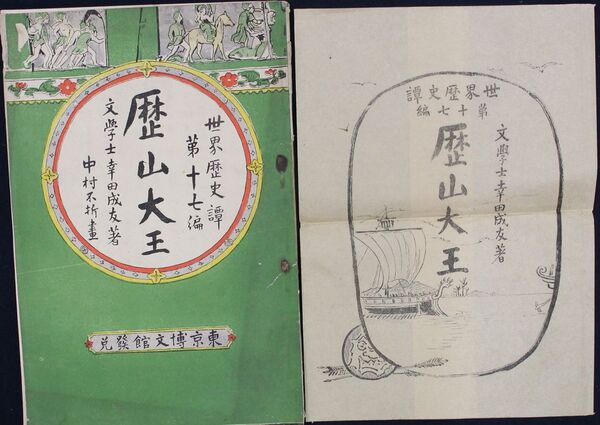 世界歴史譚
第十七編
歴山大王
文學士幸田成友著
中村不折畫
東京博文館發兌
世界歴史譚
第十七編
文學士幸田成友著
歴山大王